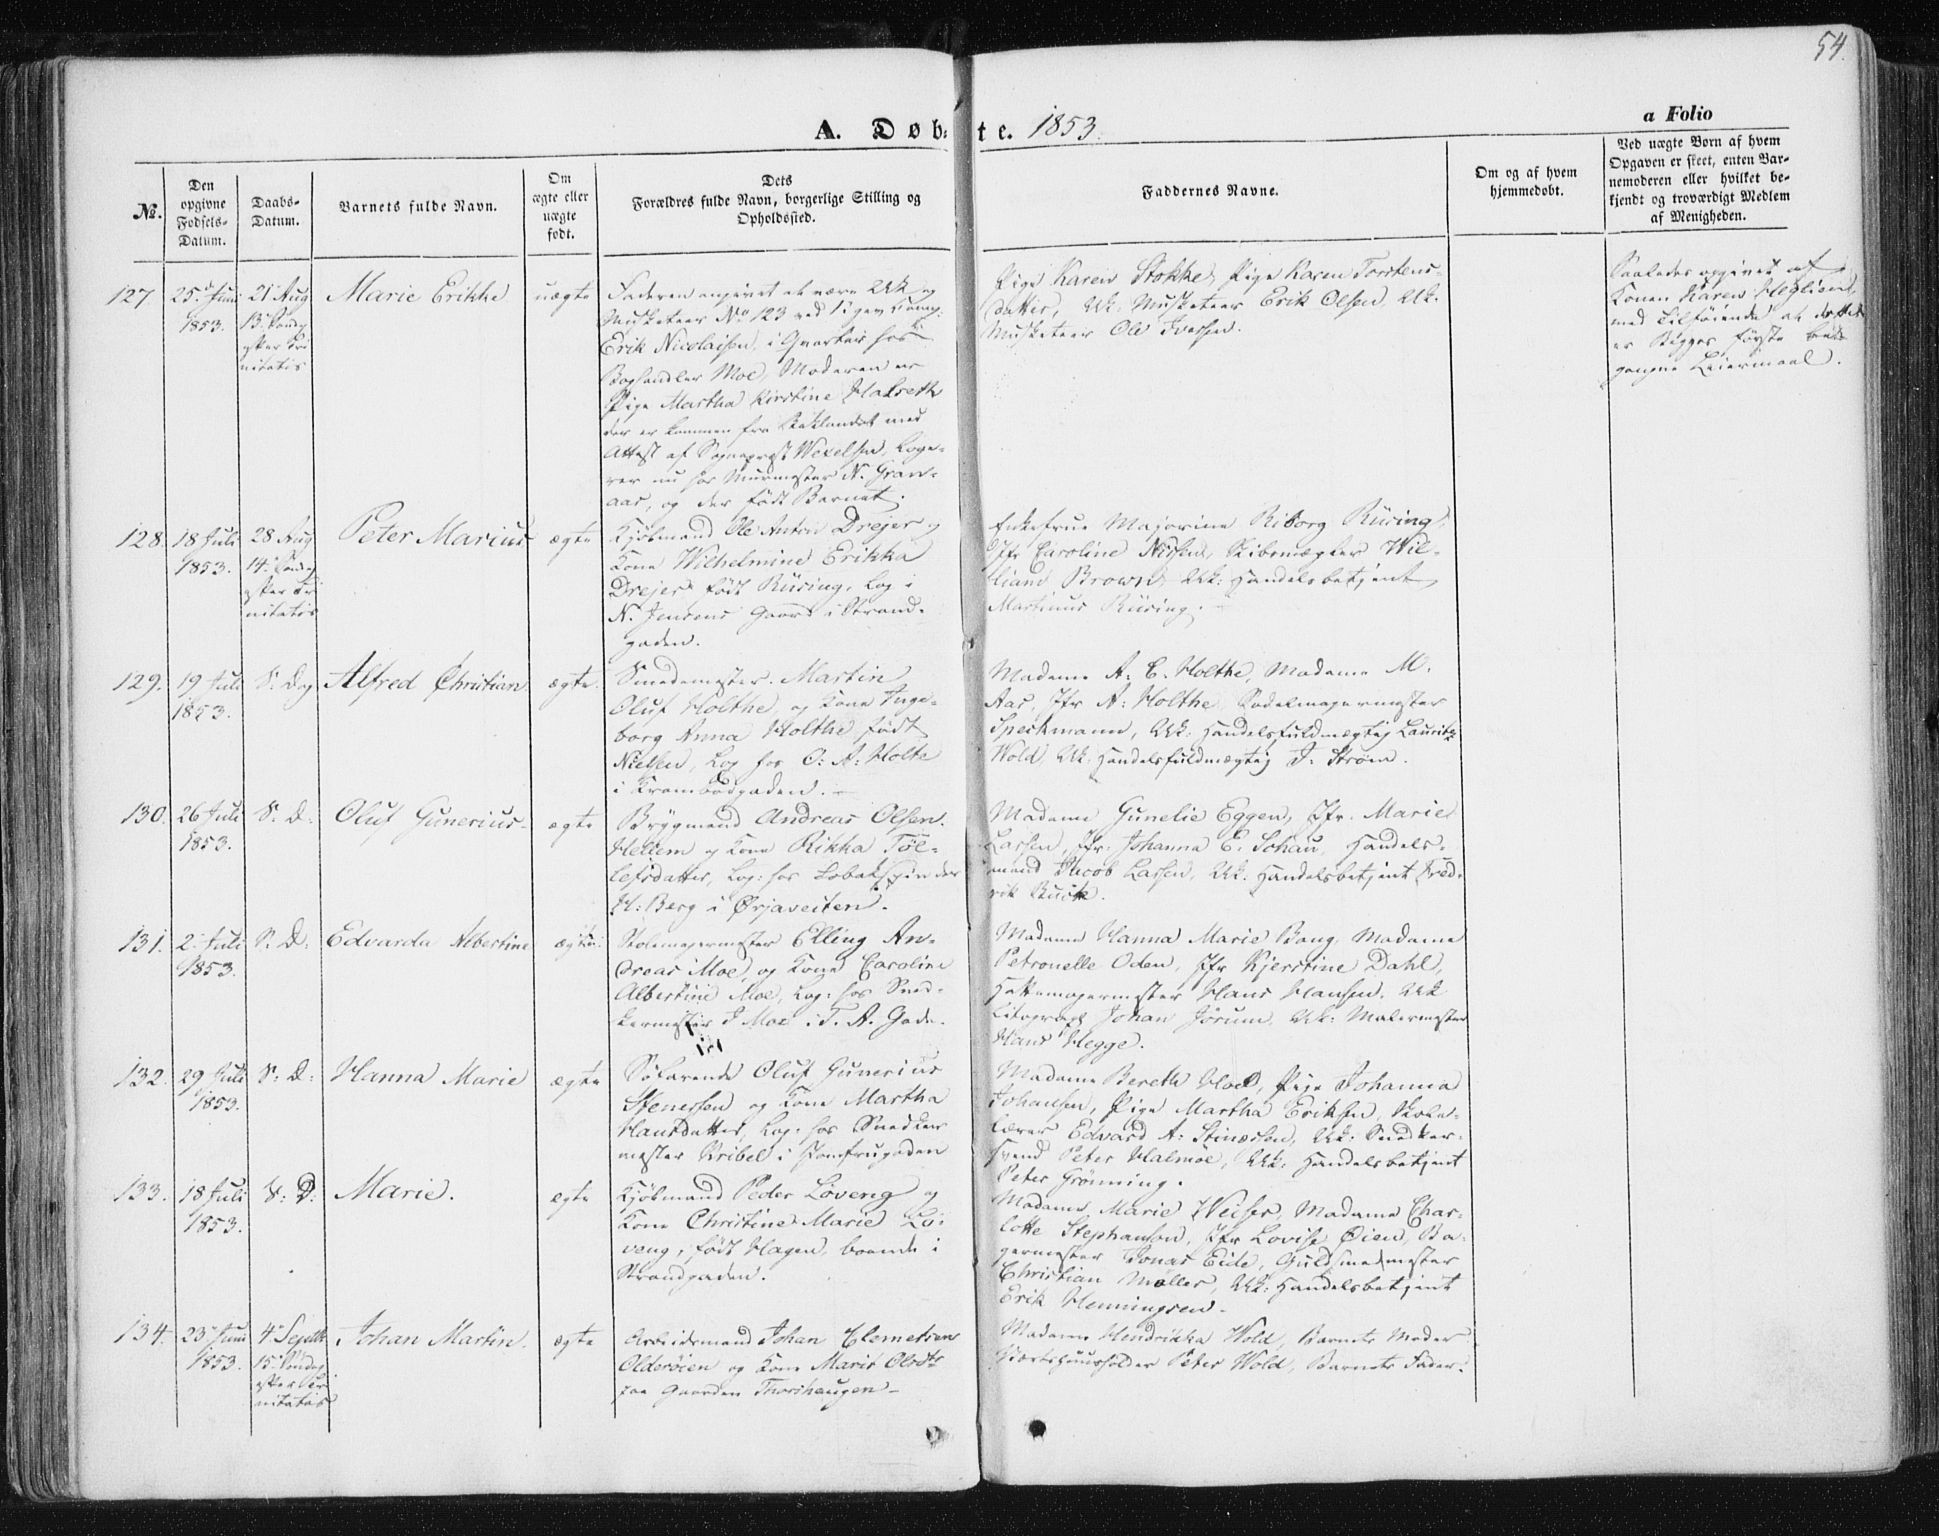 54.
A. Døbte. 1853.
a Folio
No.
Den opgivne Fødsels-Datum.
Daabs-Datum.
Barnets fulde Navn.
Om ægte eller uægte født.
Dets Forældres fulde Navn, borgerlige Stilling og Opholdssted.
Faddernes Navne.
Om og af hvem hjemmedøbt.
Ved uægte Børn af hvem Opgaven er skeet, enten Barnemoderen eller hvilket bekjendt og troværdigt Medlem af Menigheden.
127
25de Juni 1853.
21 Aug 13 Søndag efter Trinitatis
Marie Erikke
uægte
Faderen angivet at være Uk og
Musketeer No 123 ved
Erik Nicolaisen, i Qvarteer hos
Boghandler Moe, Moderen er
Pige Martha Kirstine Halseth
der er kommen fra med
Attest af Sogneprest Wexelsen, Loge-
rer nu hos Murmester N. Gran-
aas, og der født Barnet.
Pige Karen Stokke, Pige Karen Torstens-
datter, Uk: Musketeer Erik Olsen, Uk:
Musketeer Ole Iversen.
Saaledes opgivet af
Konen Karen
med Tilføiende at dette
er Begges første be-
gangne Leiermaal.
128.
18 Juli 1853.
28 Aug 14 Søndag efter Trinitatis
Peter Marius
ægte
Kjøbmand Ole Anton Drejer og
Kone Wilhelmine Erikka
Drejer født Rüsing, Log i
N. Jensens Gaard i Strand-
gaden.
Enkefrue Majorinne Riborg Rüsing,
Jfr Caroline Nissen, Skibsmægler Wil-
liam Brown, Uk: Handelsbetjent
Martinus Rüsing.
129.
19 Juli 1853.
S. Dag
Alfred Christian
ægte.
Smedemester Martin
Oluf Holthe, og Kone Inge-
borg Anna Holthe født
Nielsen, Log hos O: A: Holte
i Krambodgaden.
Madame A: E. Holthe, Madame M.
Aas, Jfr A: Holthe, Sadelmagermester
Speckmann, Uk: Handelsfuldmægtig Lauritz
Wold, Uk: Handelsfuldmægtig J. Strøm.
130.
26 Juli 1853.
S. D.
Oluf Gunerius
ægte
Brygmand Andreas Olsen
Hellem og Kone Rikka Tøl-
lefsdatter, Log: hos Tobakspinder
H: Berg i Ørjaveiten.
Madame Gunelie Eggen, Jfr. Marie
Larsen, Jfr: Johanna E. Schau, Handels-
mand Jacob Larsen, Uk: Handelsbetjent Fred-
rik
131.
2 Juli 1853.
S. D.
Edvarda Albertine
ægte:
Stolemagermester Elling An-
dreas Moe, og Kone Caroline
Albertine Moe, Log: hos Sned-
kermester J Moe i T. A. Gade.
Madame Hanna Marie Bang, Madame
Petronelle Oden, Jfr Kjerstine Dahl,
Hattemagermester Hans Hansen, Uk
Litograph Johan Jørum, Uk: Malermester
Hans Hegge.
132.
29 Juli 1853.
S: D:
Hanna Marie
ægte
Søfarende Oluf Gunerius
Stenersen og Kone Martha
Hansdatter, Log: hos Snedker
mester Kribel i Jomfrugaden
Madame Bereth Hoel, Pige Johanna
Johansen, Pige Martha Eriksen, Skole-
lærer Edvard A: Stinersen, Uk: Snedker-
svend Peter Halmøe, Uk: Handelsbetjent
Peter Grønning.
133.
18 Juli 1853.
S: D:
Marie.
ægte
Kjøbmand Peder Løveng og
Kone Christine Marie Lø-
veng, født Hagen, boende i
Strandgaden.
Madame Marie Weiser, Madame Char-
lotte Stephanson, Jfr Lovise Øien, Ba-
germester Jonas Eide, Guldsmedmester
Christian Møller, Uk: Handelsbetjent
Erik Henningsen.
134.
23 Juni 1853.
4 Septbr 15 Søndag efter Trinitatis
Johan Martin.
ægte
Arbeidsmand Johan Clemetsen
Olderøien og Kone Marit Olsdtr
paa Gaarden Thorshaugen
Madame Hendrikka Wold, Barnets Moder
Peter Wold, Barnets Fader.